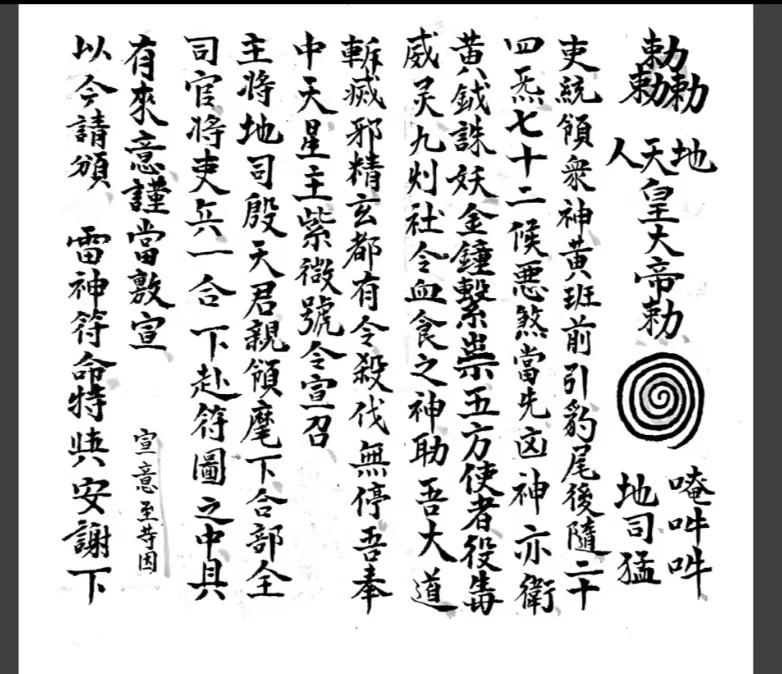 勅勅勅 地天人 皇大帝勅 唵吽吽 地司猛
吏統領衆神黃班前引豹尾後隨二十
四炁七十二候惡煞當先凶神亦衛
黃鉞誅妖金錘繫祟五方使者役毒
威灵九州社令血食之神助吾大道
斬滅邪精玄都有令殺伐無停吾奉
中天星主紫微號令宣召
主將地司殷天君親領麾下合部全
司官將吏兵一合下赴符圖之中具
有來意謹當敷宣 宣意至因
以今請頒 雷神符命特與安謝下